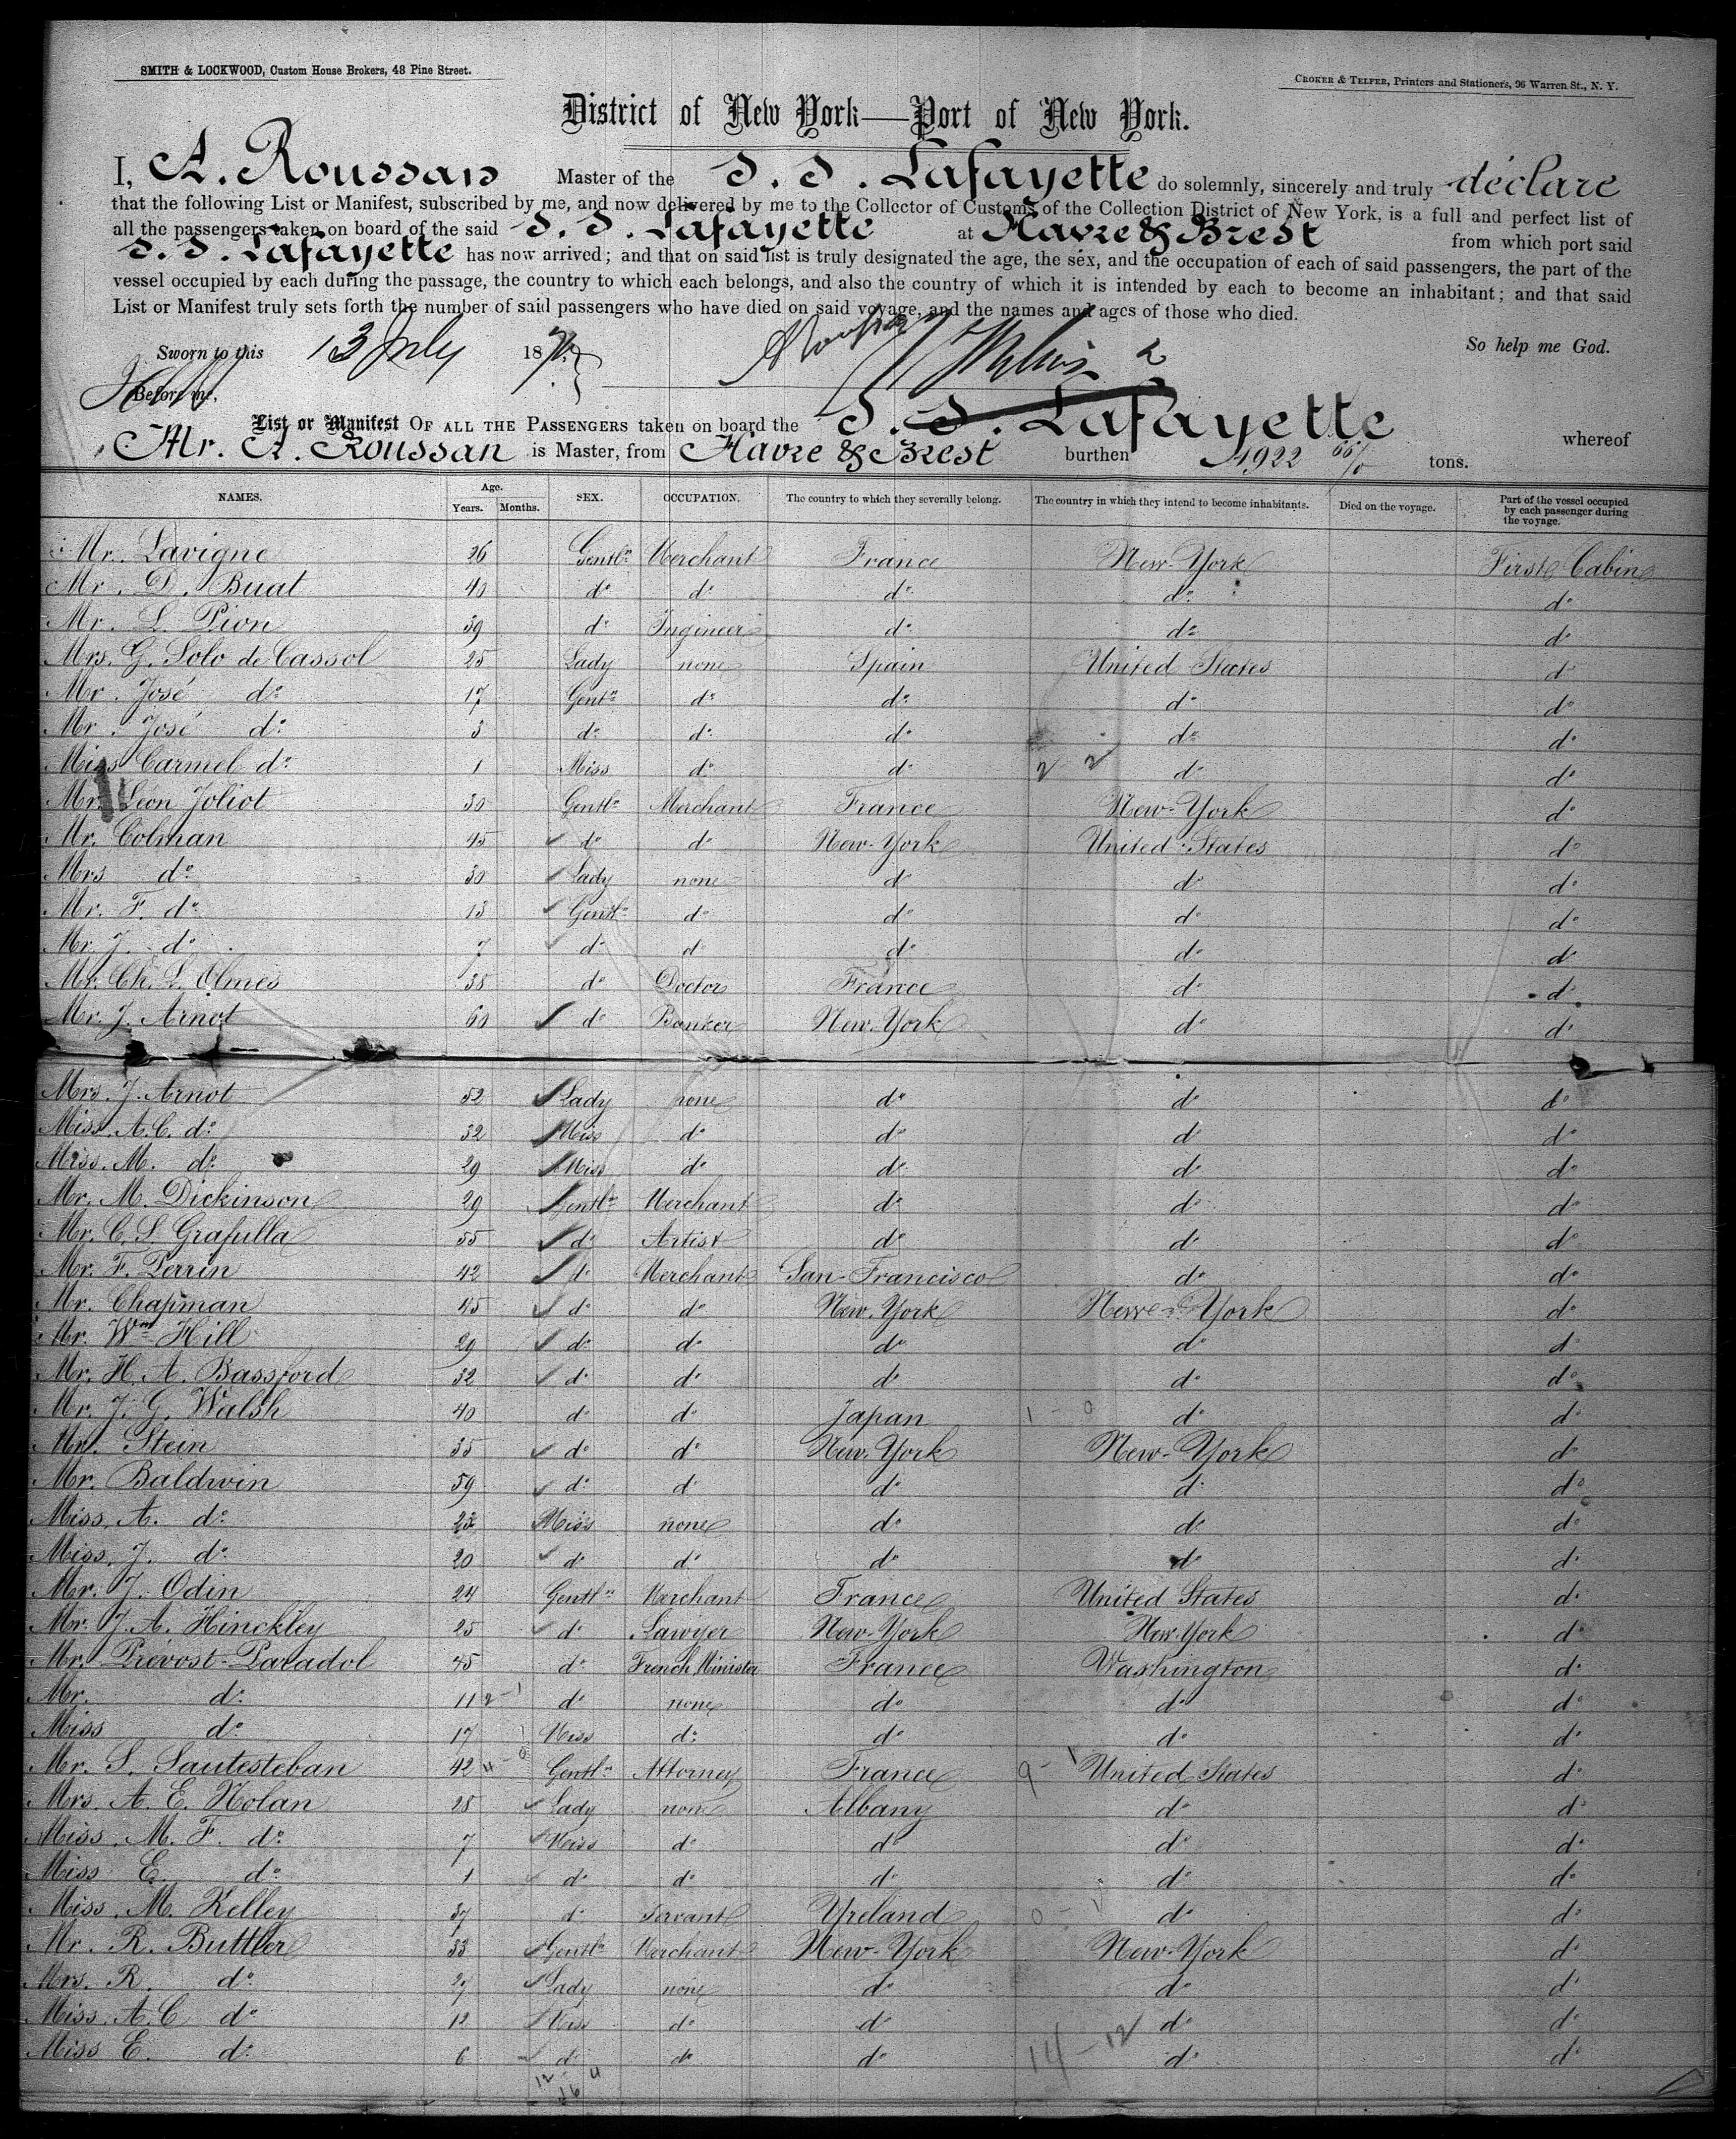 SMITH & LOCKWOOD, Custom House Brokers, 48 Pine Street.
CROKER & TELFER, Printers and Stationers, 96 Warren St., N. Y.
District of New York—Port of New York.
I, A. Roussan Master of the S. S. Lafayette do solemnly, sincerely and truly déclare
that the following List or Manifest, subscribed by me, and now delivered by me to the Collector of Customs of the Collection District of New York, is a full and perfect list of
all the passengers taken on board of the said S. S. Lafayette at Havre & Brest from which port said
S. S. Lafayette has now arrived; and that on said list is truly designated the age, the sex, and the occupation of each of said passengers, the part of the
vessel occupied by each during the passage, the country to which each belongs, and also the country of which it is intended by each to become an inhabitant; and that said
List or Manifest truly sets forth the number of said passengers who have died on said voyage, and the names and ages of those who died.
Sworn to this 13 July 187 So help me God.
Before me,
List or Manifest OF ALL THE PASSENGERS taken on board the S. S. Lafayette whereof
Mr. A. Roussan is Master, from Havre & Brest burthen 1,922 tons.
NAMES. Age. Years. Months. SEX. OCCUPATION. The country to which they severally belong. The country in which they intend to become inhabitants. Died on the voyage. Part of the vessel occupied by each passenger during the voyage.
Mr. Lavigne 26 Gentln Merchant France New-York First Cabin
Mr. D. Buat 40 do do do do do
Mr. L. Pion 39 do Ingineer do do do
Mrs. G. Solo de Cassol 25 Lady none Spain United States do
Mr. José do 17 Gentn do do do do
Mr. José do 3 do do do do do
Miss Carmel do 1 Miss do do 2 2 do do
Mr. Léon Joliot 30 Gentln Merchant France New-York do
Mr. Colman 45 do do New-York United States do
Mrs do 30 Lady none do do do
Mr. F. do 13 Gentln do do do do
Mr. J. do 7 do do do do do
Mr. Ch. L. Olmes 35 do Doctor France do do
Mr. J. Arnot 60 do Banker New-York do do
Mrs. J. Arnot 52 Lady none do do do
Miss. A. C. do 32 Miss do do do do
Miss. M. do 29 Miss do do do do
Mr. M. Dickinson 29 Gentln Merchant do do do
Mr. C. S. Grafulla 55 do Artist do do do
Mr. F. Perrin 42 do Merchant San-Francisco do do
Mr. Chapman 45 do do New-York New-York do
Mr. Wm Hill 29 do do do do do
Mr. H. A. Bassford 32 do do do do do
Mr. J. G. Walsh 40 do do Japan 1 - 0 do do
Mr. Stein 35 do do New-York New-York do
Mr. Baldwin 59 do do do do do
Miss. A. do 22 Miss none do do do
Miss. J. do 20 do do do do do
Mr. J. Odin 24 Gentln Merchant France United States do
Mr. J. A. Hinckley 25 do Lawyer New-York New-York do
Mr. Prévost-Paradol 45 do French Minister France Washington do
Mr. do 11 2 - 1 do none do do do
Miss do 17 Miss do do do do
Mr. S. Sautesteban 42 Gentln Attorney France 9 - 1 United States do
Mrs. A. E. Nolan 28 Lady none Albany do do
Miss. M. F. do 7 Miss do do do do
Miss E. do 1 do do do do do
Miss. M. Kelley 37 do Servant Yreland 0 - 1 do do
Mr. R. Buttler 33 Gentln Merchant New-York New-York do
Mrs. R. do 27 Lady none do do do
Miss. A. C do 12 Miss do do do do
Miss E. do 6 do do do 14 - 12 do do
12 - 4
16